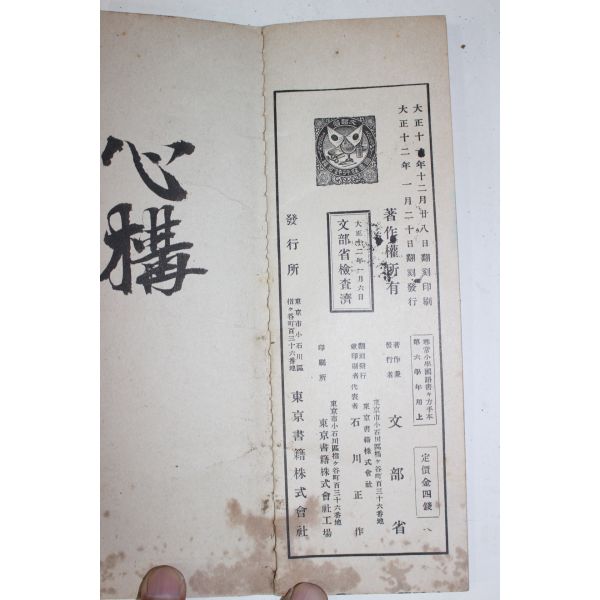 大正十年十二月廿八日翻刻印刷
大正十二年一月二十日翻刻發行
著作權所有
大正十二年一月六日
文部省檢查濟
尋常小學國語書キ方手本
第六學年用上
定價金四錢
著作兼
發行者
文部省
東京市小石川區指ヶ谷町百三十六番地
東京書籍株式會社
翻刻發行
兼印刷者
代表者
石川正作
東京市小石川區指ヶ谷町百三十六番地
印刷所
東京書籍株式會社工場
發行所
東京市小石川區
指ヶ谷町百三十六番地
東京書籍株式會社
心構